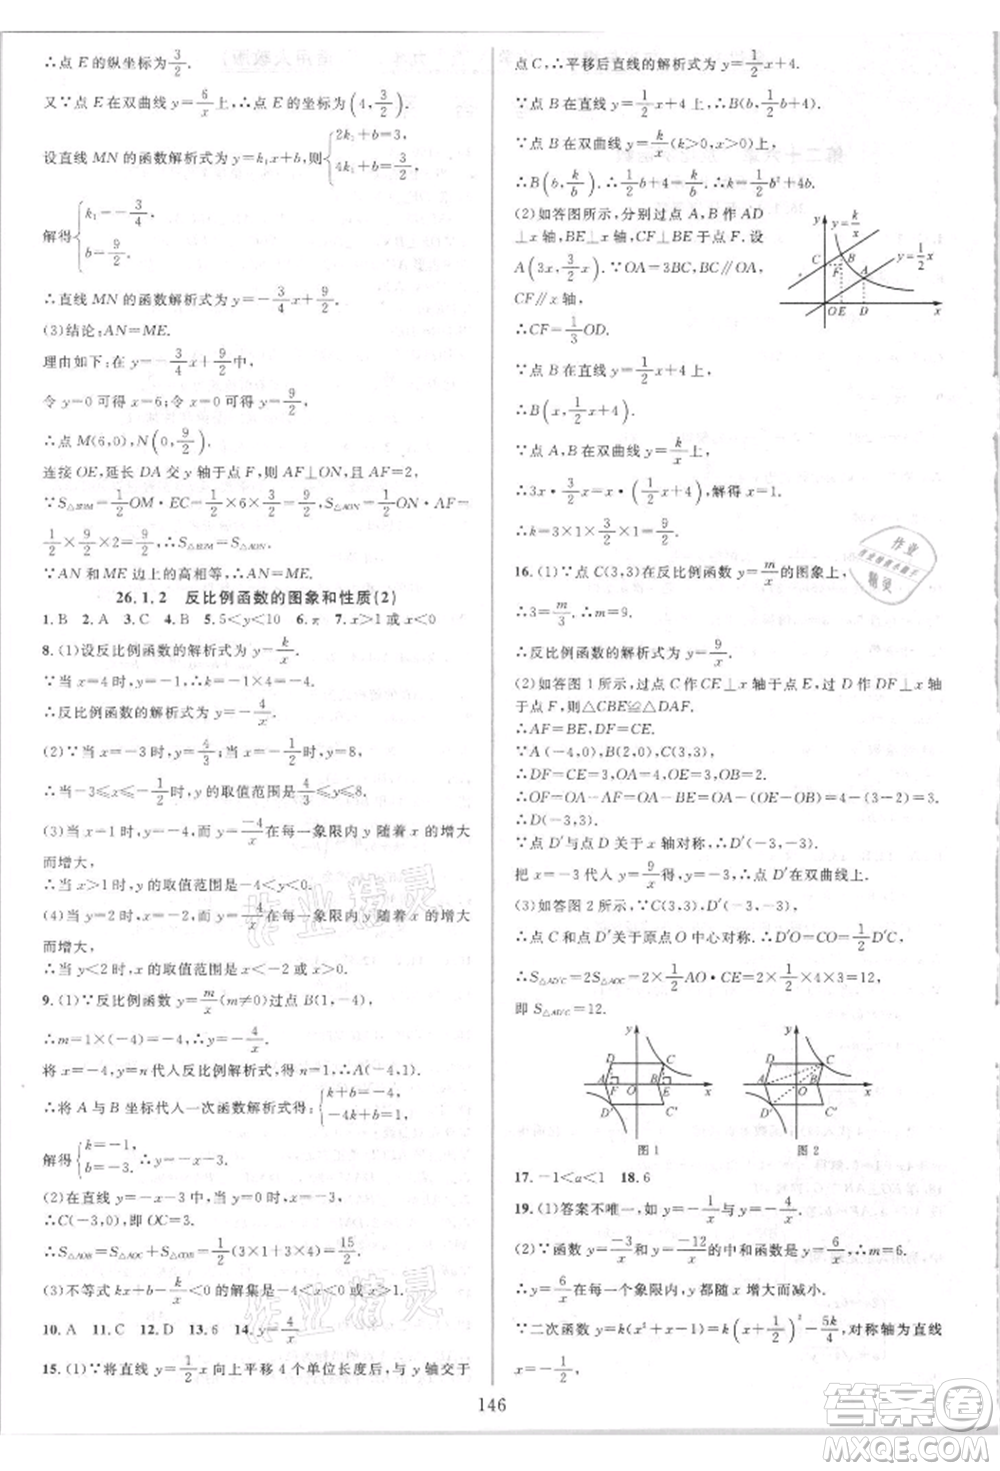 ∴点 E 的纵坐标为 3/2.
又∵点 E 在双曲线 y=6/x 上,∴点 E 的坐标为(4, 3/2).
设直线 MN 的函数解析式为 y=k₁x+b,则{2k₁+b=3, 4k₁+b=3/2.
解得{k₁=-3/4, b=9/2.
∴直线 MN 的函数解析式为 y=-3/4x+9/2.
(3)结论:AN=ME.
理由如下:在 y=-3/4x+9/2 中,
令 y=0 可得 x=6,令 x=0 可得 y=9/2,
∴点 M(6,0),N(0, 9/2),
连接 OE,延长 DA 交 y 轴于点 F,则 AF⊥ON,且 AF=2,
∵S△EOM=1/2OM·EC=1/2×6×3/2=9/2,S△AON=1/2ON·AF=
1/2×9/2×2=9/2,∴S△EOM=S△AON.
∵AN 和 ME 边上的高相等,∴AN=ME.
26.1.2 反比例函数的图象和性质(2)
1.B 2.A 3.C 4.B 5.5<y<10 6.π 7.x>1 或 x<0
8.(1)设反比例函数的解析式为 y=k/x.
∵当 x=4 时,y=-1,∴k=4×(-1)=-4.
∴反比例函数的解析式为 y=-4/x.
(2)∵当 x=-3 时,y=4/3;当 x=-1/2时,y=8,
∴当-3≤x≤-1/2时,y 的取值范围是4/3≤y≤8.
(3)当 x=1 时,y=-4,而 y=-4/x在每一象限内 y 随着 x 的增大
而增大,
∴当 x>1 时,y 的取值范围是-4<y<0.
(4)当 y=2 时,x=-2,而 y=-4/x在每一象限内 y 随着 x 的增大
而增大.
∴当 y<2 时,x 的取值范围是 x<-2 或 x>0.
9.(1)∵反比例函数 y=m/x(m≠0)过点 B(1,-4),
∴m=1×(-4)=-4,∴y=-4/x.
将 x=n,y=-n 代人反比例解析式,得 n=2.∴A(-4,1).
∴将 A 与 B 坐标代人一次函数解析式得:{k+b=-4, -4k+b=1,
解得{k=-1, b=-3. ∴y=-x-3.
(2)在直线 y=-x-3 中,当 y=0 时,x=-3,
∴C(-3,0),即 OC=3.
∴S△AOB=S△AOC+S△COB=1/2(3×1+3×4)=15/2.
(3)不等式 kx+b-m/x<0 的解集是-4<x<0 或 x>1.
10.A 11.C 12.D 13.6 14.y=4/x
15.(1)∵将直线 y=1/2x 向上平移 4 个单位长度后,与 y 轴交于
点 C,∴平移后直线的解析式为 y=1/2x+4,
∵点 B 在直线 y=1/2x+4 上,∴B(b, 1/2b+4).
∵点 B 在双曲线 y=k/x(k>0,x>0)上,
∴B(b, k/b).令1/2b+4=k/b,得 k=1/2b²+4b.
(2)如答图所示,分别过点 A,B 作 AD
⊥x 轴,BE⊥x 轴,CF⊥BE 于点 F.设
A(3x, 3/2x),∵OA=3BC,BC∥OA,
CF∥x 轴,
∴CF=1/3OD.
∵点 B 在直线 y=1/2x+4 上,
∴B(x, 1/2x+4).
∵点 A,B 在双曲线 y=k/x上,
∴3x·3/2x=x·(1/2x+4),解得 x=1.
∴k=3×1×3/2×1=9/2.
16.(1)∵点 C(3,3)在反比例函数 y=m/x的图象上,
∴3=m/3,∴m=9.
∴反比例函数的解析式为 y=9/x.
(2)如答图 1 所示,过点 C 作 CE⊥x 轴于点 E,过点 D 作 DF⊥x 轴
于点 F,则△CBE≌△DAF.
∴AF=BE,DF=CE.
∵A(-4,0),B(2,0),C(3,3),
∴DF=CE=3,OA=4,OE=3,OB=2.
∴OF=OA-AF=OA-BE=OA-(OE-OB)=4-(3-2)=3.
∴D(-3,3).
∵点 D′与点 D 关于 x 轴对称,∴D′(-3,-3).
把 x=-3 代人 y=9/x得,y=-3,∴点 D′在双曲线上.
(3)如答图 2 所示,∵C(3,3),D′(-3,-3),
∴点 C 和点 D′关于原点 O 中心对称.∴D′O=CO=1/2D′C,
∴S△AD′C=2S△AOC=2×1/2AO·CE=2×1/2×4×3=12,
即 S△AD′C=12.
图 1
图 2
17.-1<a<1 18.6
19.(1)答案不唯一,如 y=-1/x与 y=-4/x等.
(2)∵函数 y=-3/x和 y=-12/x的中和函数 y=6/x,∴m=6.
∴y=6/x在每一个象限内,y 都随 x 的增大而减小.
∵二次函数 y=k(x²+x-1)=k(x+1/2)²-5k/4,对称轴为直线
x=-1/2,
146
作业精灵
作业精灵
答案圈
MXQE.COM